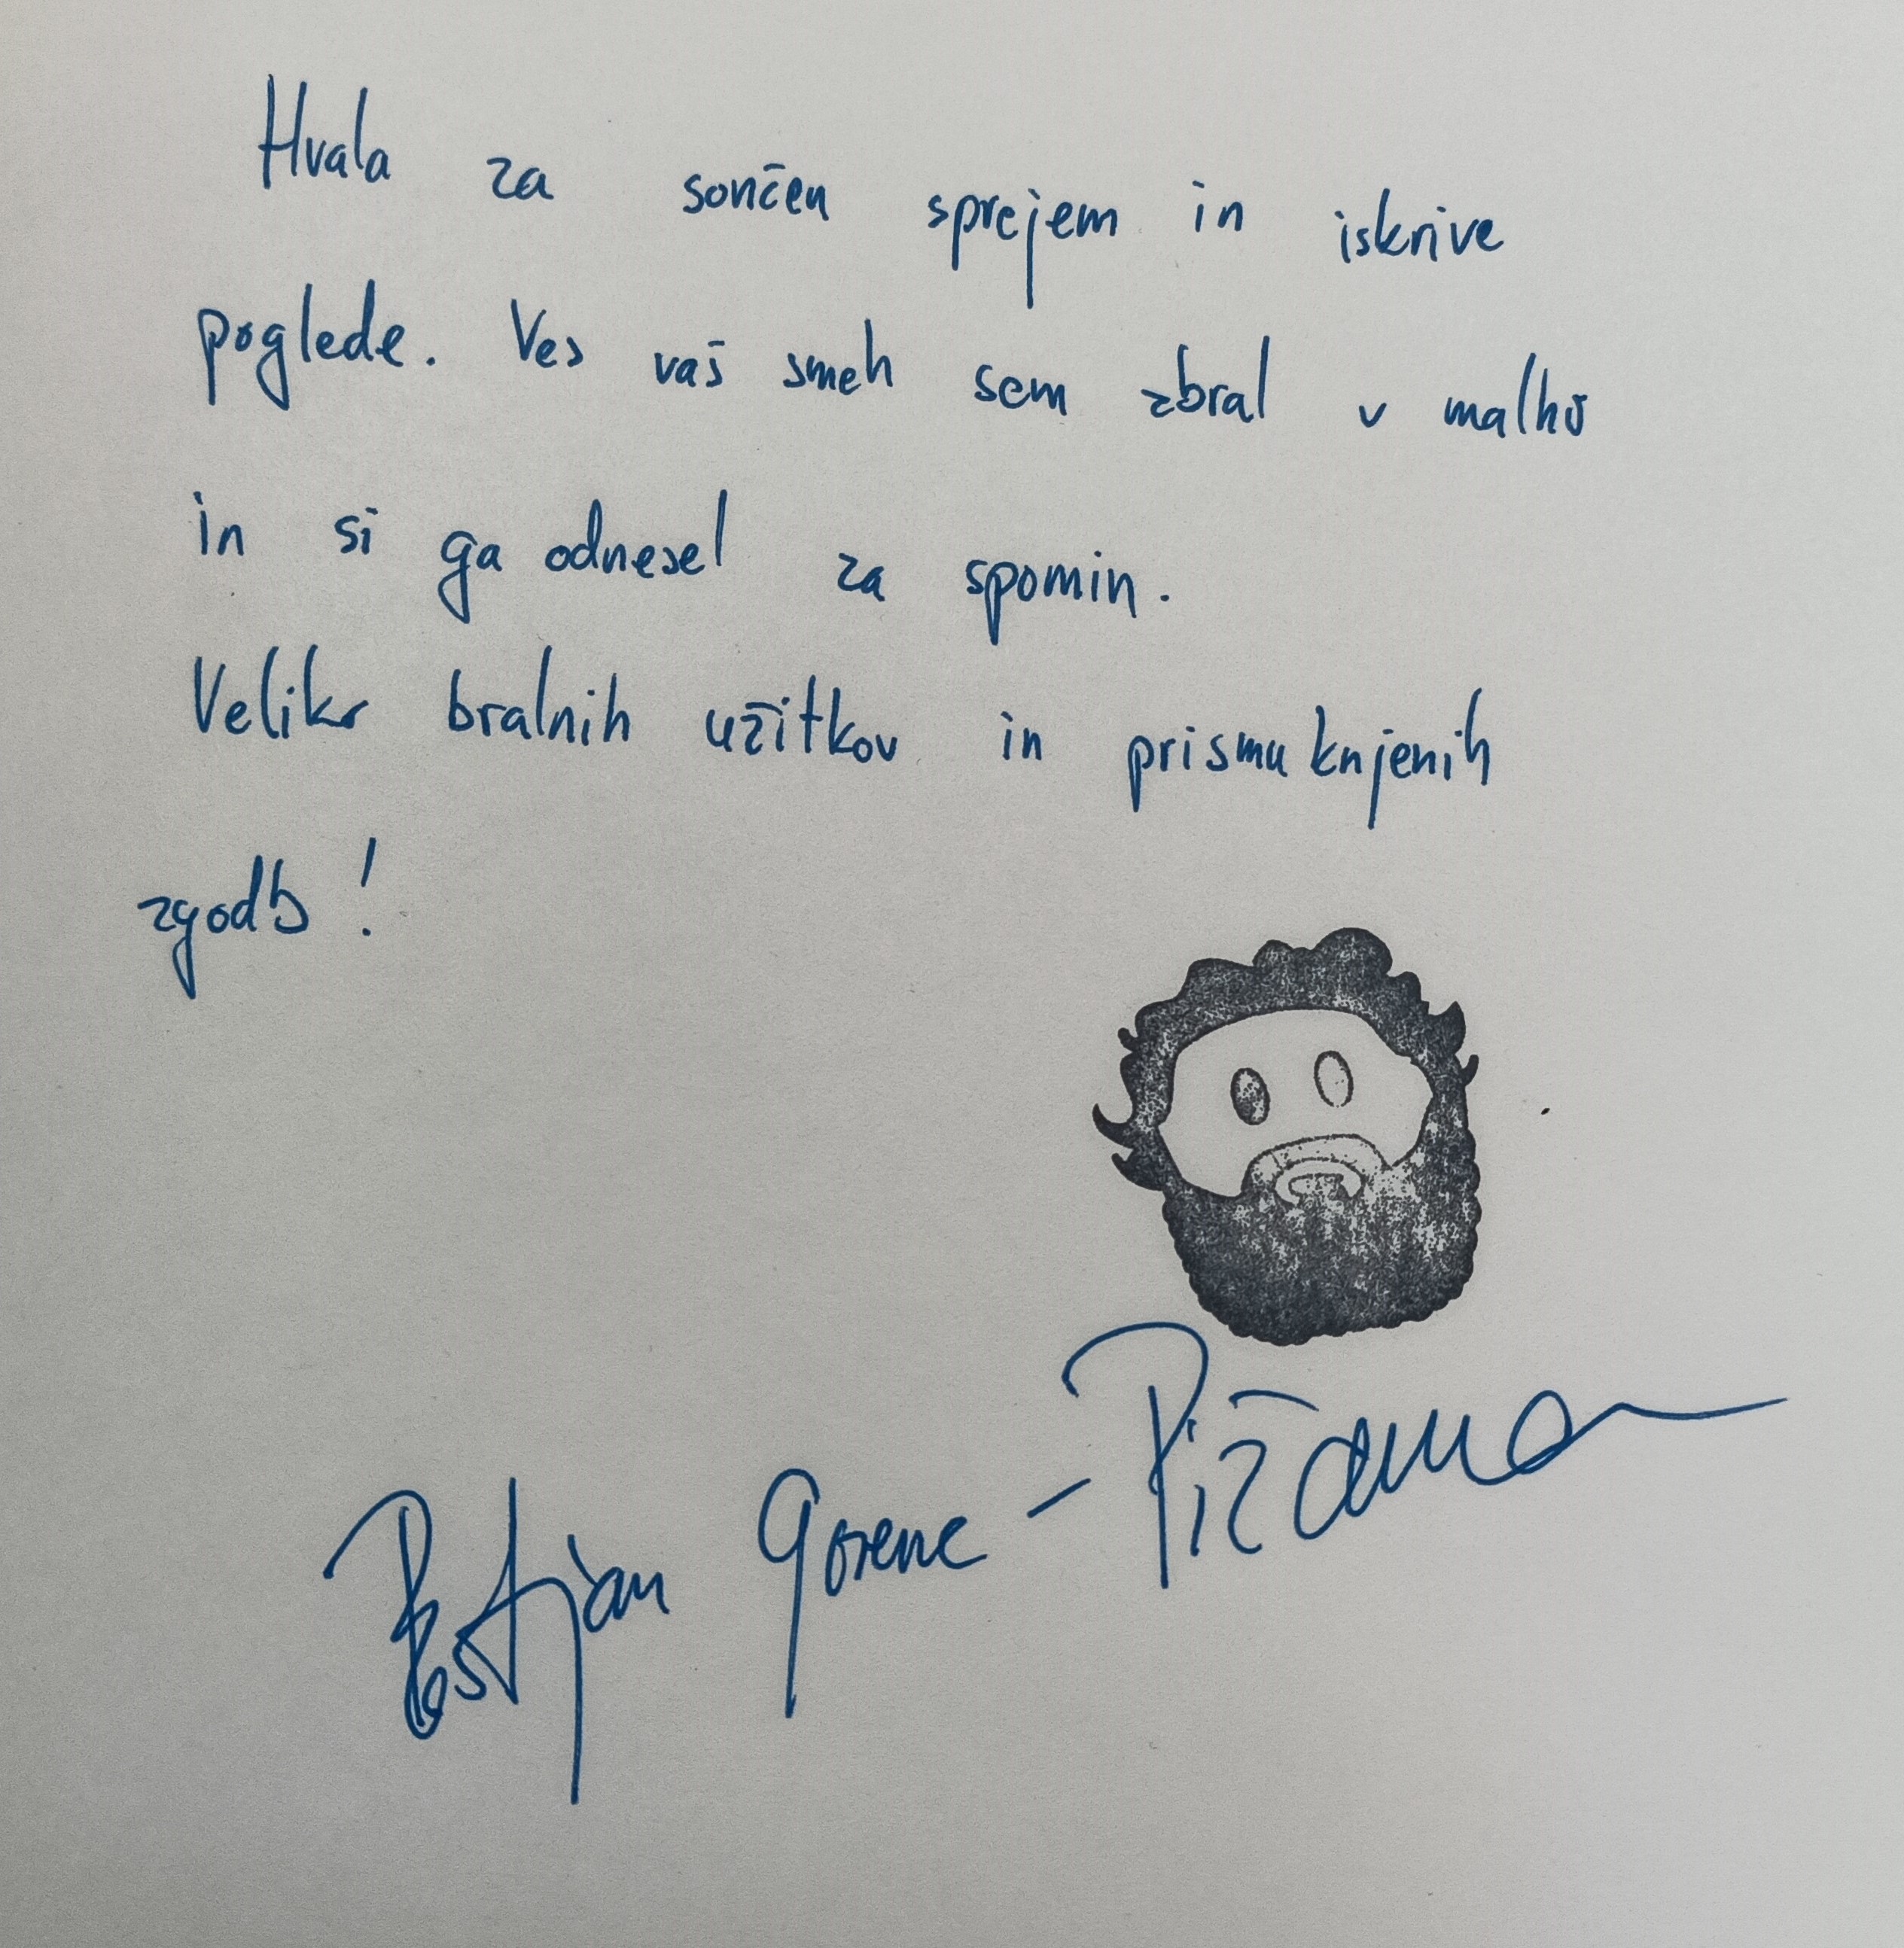 Hvala za sončen sprejem in iskrive
poglede. Ves vaš smeh sem zbral v malho
in si ga odnesel za spomin.
Veliko bralnih užitkov in prismuknjenih
zgodb!
Boštjan Gorenc - Pižama